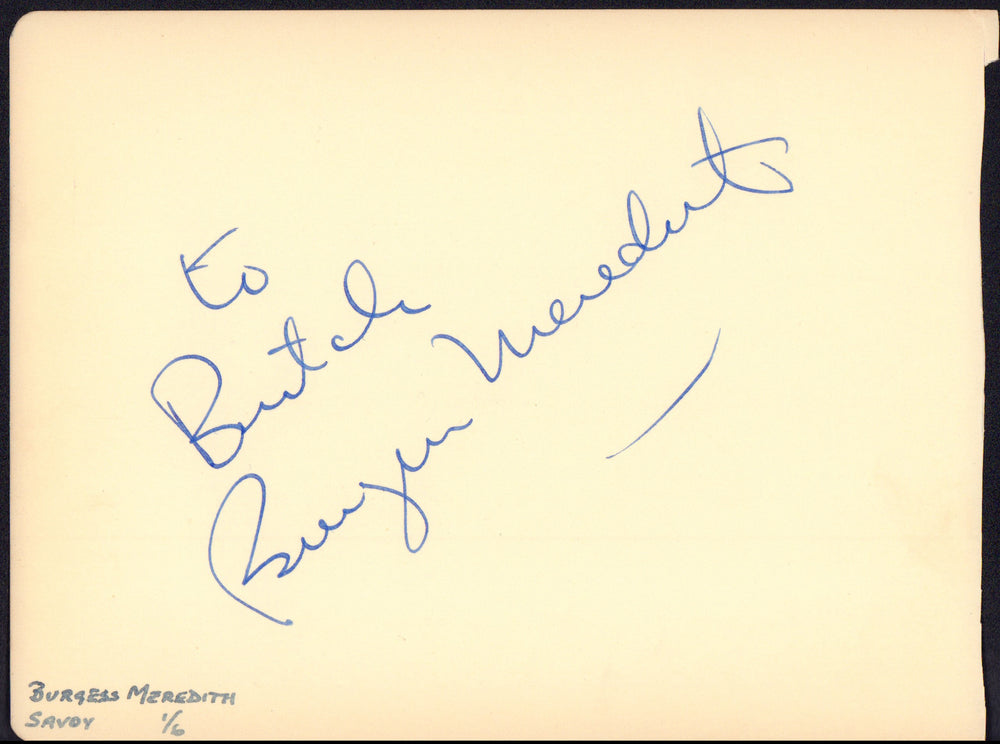 to
Butch
Burgess Meredith
BURGESS MEREDITH
SAVOY 1/6